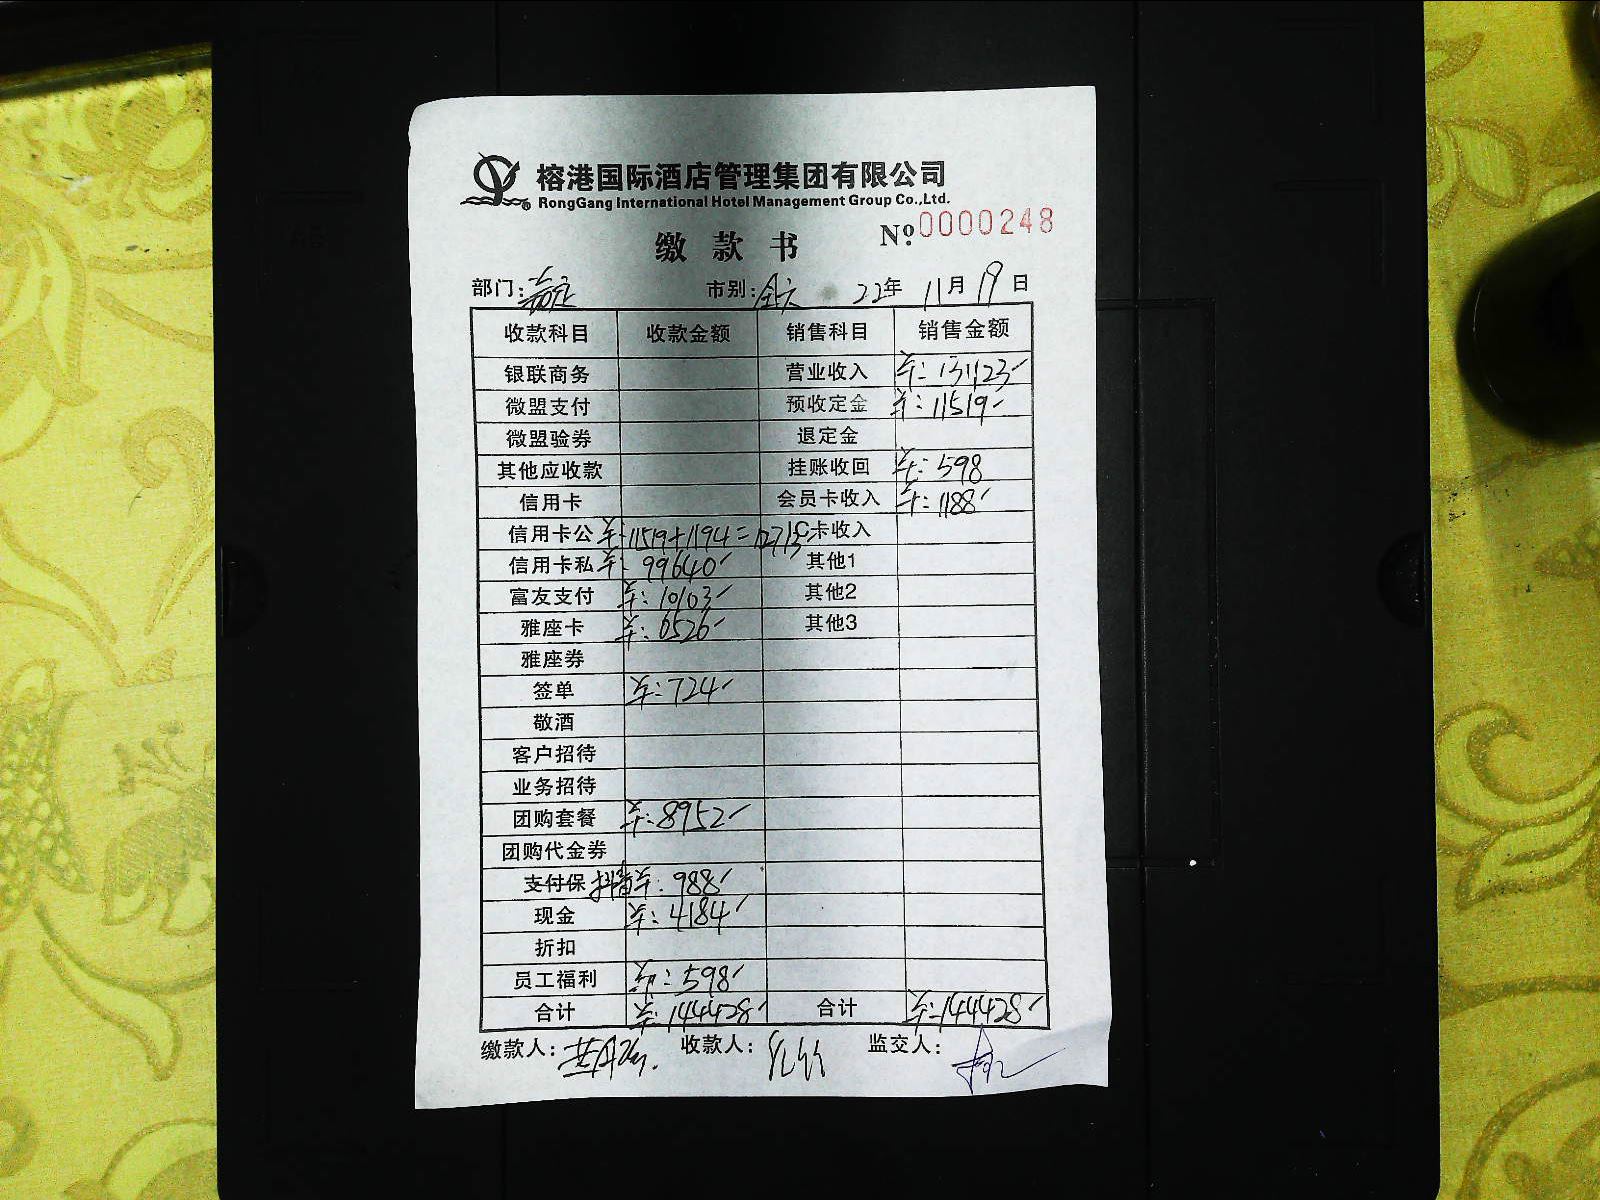 榕港国际酒店管理集团有限公司
RongGang International Hotel Management Group Co.,Ltd.
缴款书 №:0000248
部门: 市别: 22年 11月 19日
收款科目 收款金额 销售科目 销售金额
银联商务 营业收入 131123
微盟支付 预收定金 11519
微盟验券 退定金
其他应收款 挂账收回 598
信用卡 会员卡收入 1188
信用卡公 11519+1194=12713 C卡收入
信用卡私 99640 其他1
富友支付 10103 其他2
雅座卡 6526 其他3
雅座券
签单 724
敬酒
客户招待
业务招待
团购套餐 8952
团购代金券
支付保 988
现金 4184
折扣
员工福利 598
合计 144428 合计 144428
缴款人: 收款人: 监交人: